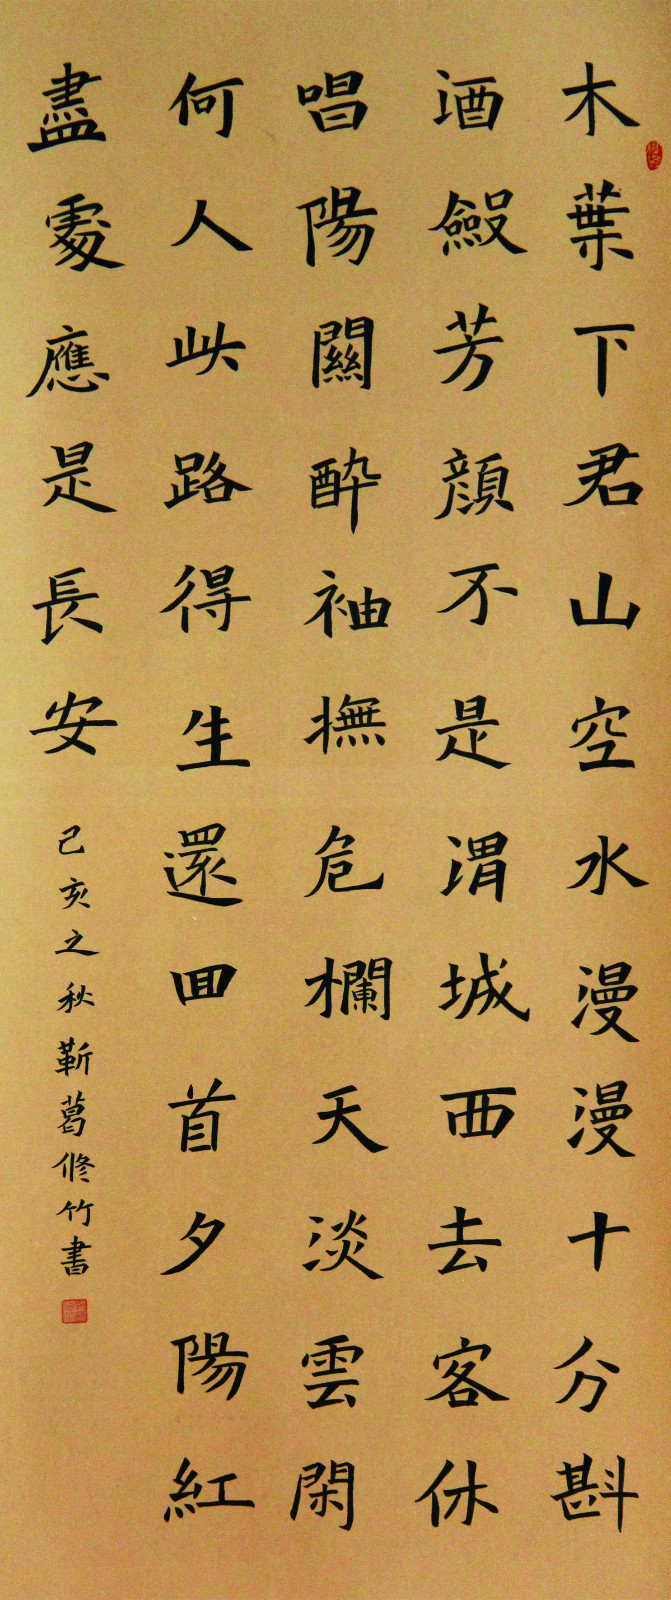 木葉下君山空水漫漫十分斟
酒斂芳顏不是渭城西去客休
唱陽關醉袖撫危欄天淡雲閑
何人此路得生還回首夕陽紅
盡處應是長安
己亥之秋靳葛修竹書